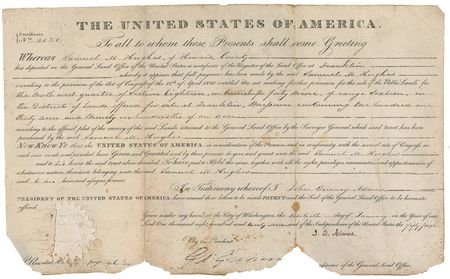 THE UNITED STATES OF AMERICA.
Certificate
No. 2020
To all to whom these Presents shall come Greeting
Whereas Samuel M. Hughes of Howard County
has deposited in the General Land Office of the United States a certificate of the Register of the Land Office at Franklin
whereby it appears that full payment has been made by the said Samuel M. Hughes
according to the provisions of the Act of Congress of the 24th of April 1820 entitled An act making further provision for the sale of the Public Lands for
the North west quarter of Section Eighteen in township forty nine, of range sixteen, in
the District of lands offered for sale at Franklin, Missouri containing One hundred and
thirty acres and Ninety hundredths of an acre
according to the official plat of the survey of the said Lands returned to the General Land Office by the Surveyor General which said tract has been
purchased by the said Samuel M. Hughes
NOW KNOW YE that the UNITED STATES OF AMERICA in consideration of the Premises and in conformity with the several acts of Congress in
such case made and provided have Given and Granted and by these presents do give and grant unto the said Samuel M. Hughes
and to his heirs the said tract above described To have and to Hold the same together with all the rights privileges immunities and appurtenances of
whatsoever nature thereunto belonging unto the said Samuel M. Hughes
and to his heirs and assigns forever
In Testimony whereof I John Quincy Adams
PRESIDENT OF THE UNITED STATES OF AMERICA have caused these letters to be made PATENT and the Seal of the General Land Office to be hereunto
affixed
Given under my hand at the City of Washington the day of January in the Year of our
Lord One thousand eight hundred and twenty and of the Independence of the United States the fiftieth
By the President J. Q. Adams
Geo: Graham
Commissioner of the General Land Office
page 46